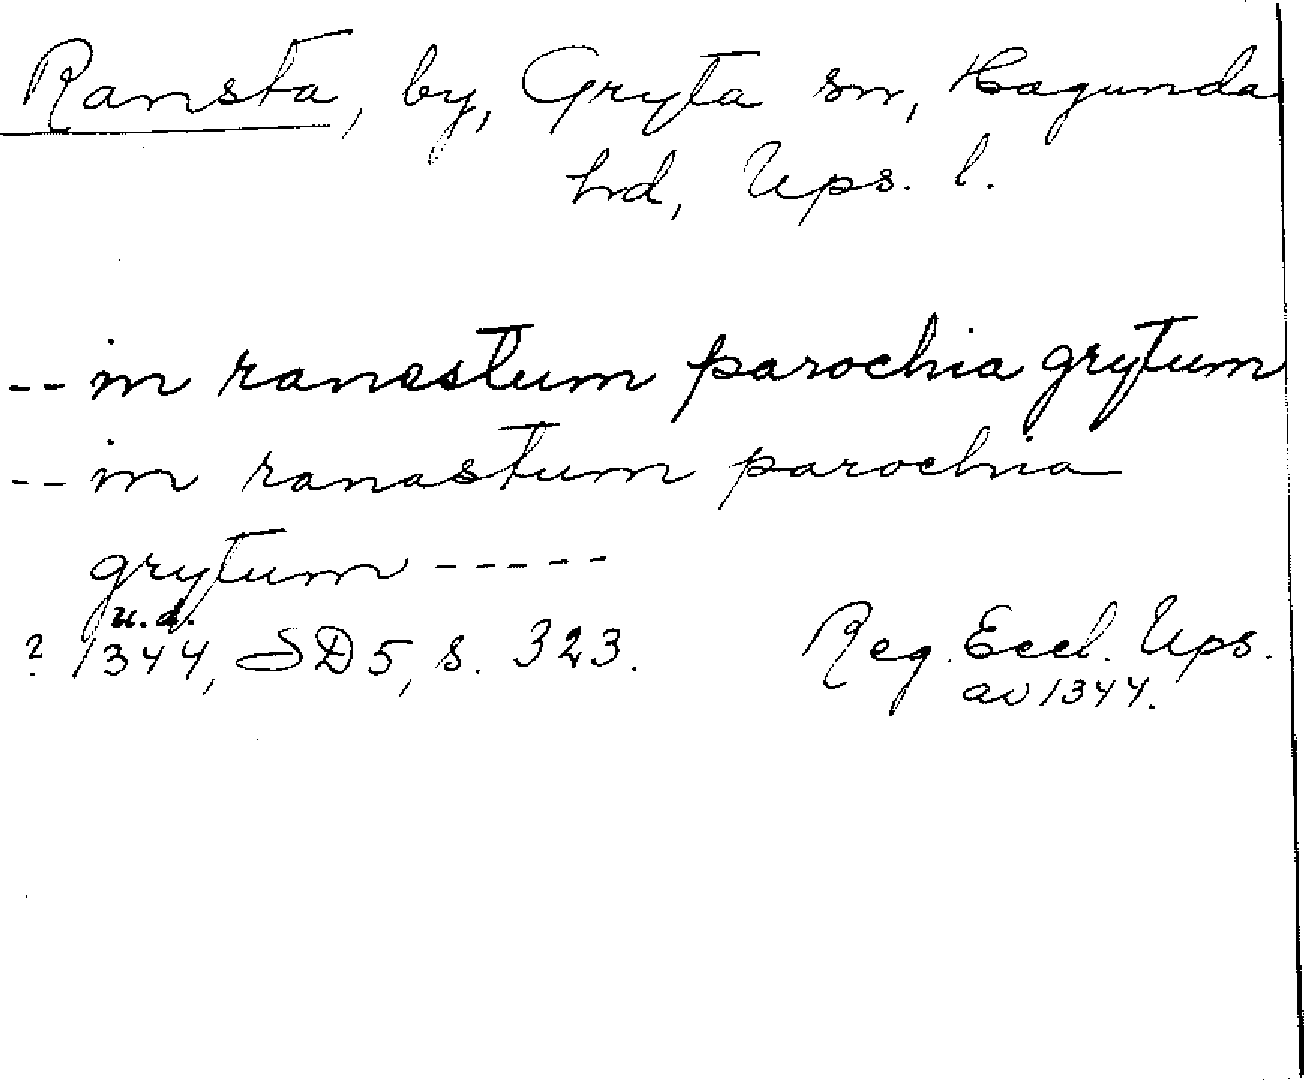 Ransta, by, Gryta sn, Hagunda
hd, Ups. l.
-- in ranastum parochia grytum
-- in ranastum parochia
grytum -----
u.d.
? 1344, SD5, s. 323.
Reg. Eccl. Ups.
av 1344.